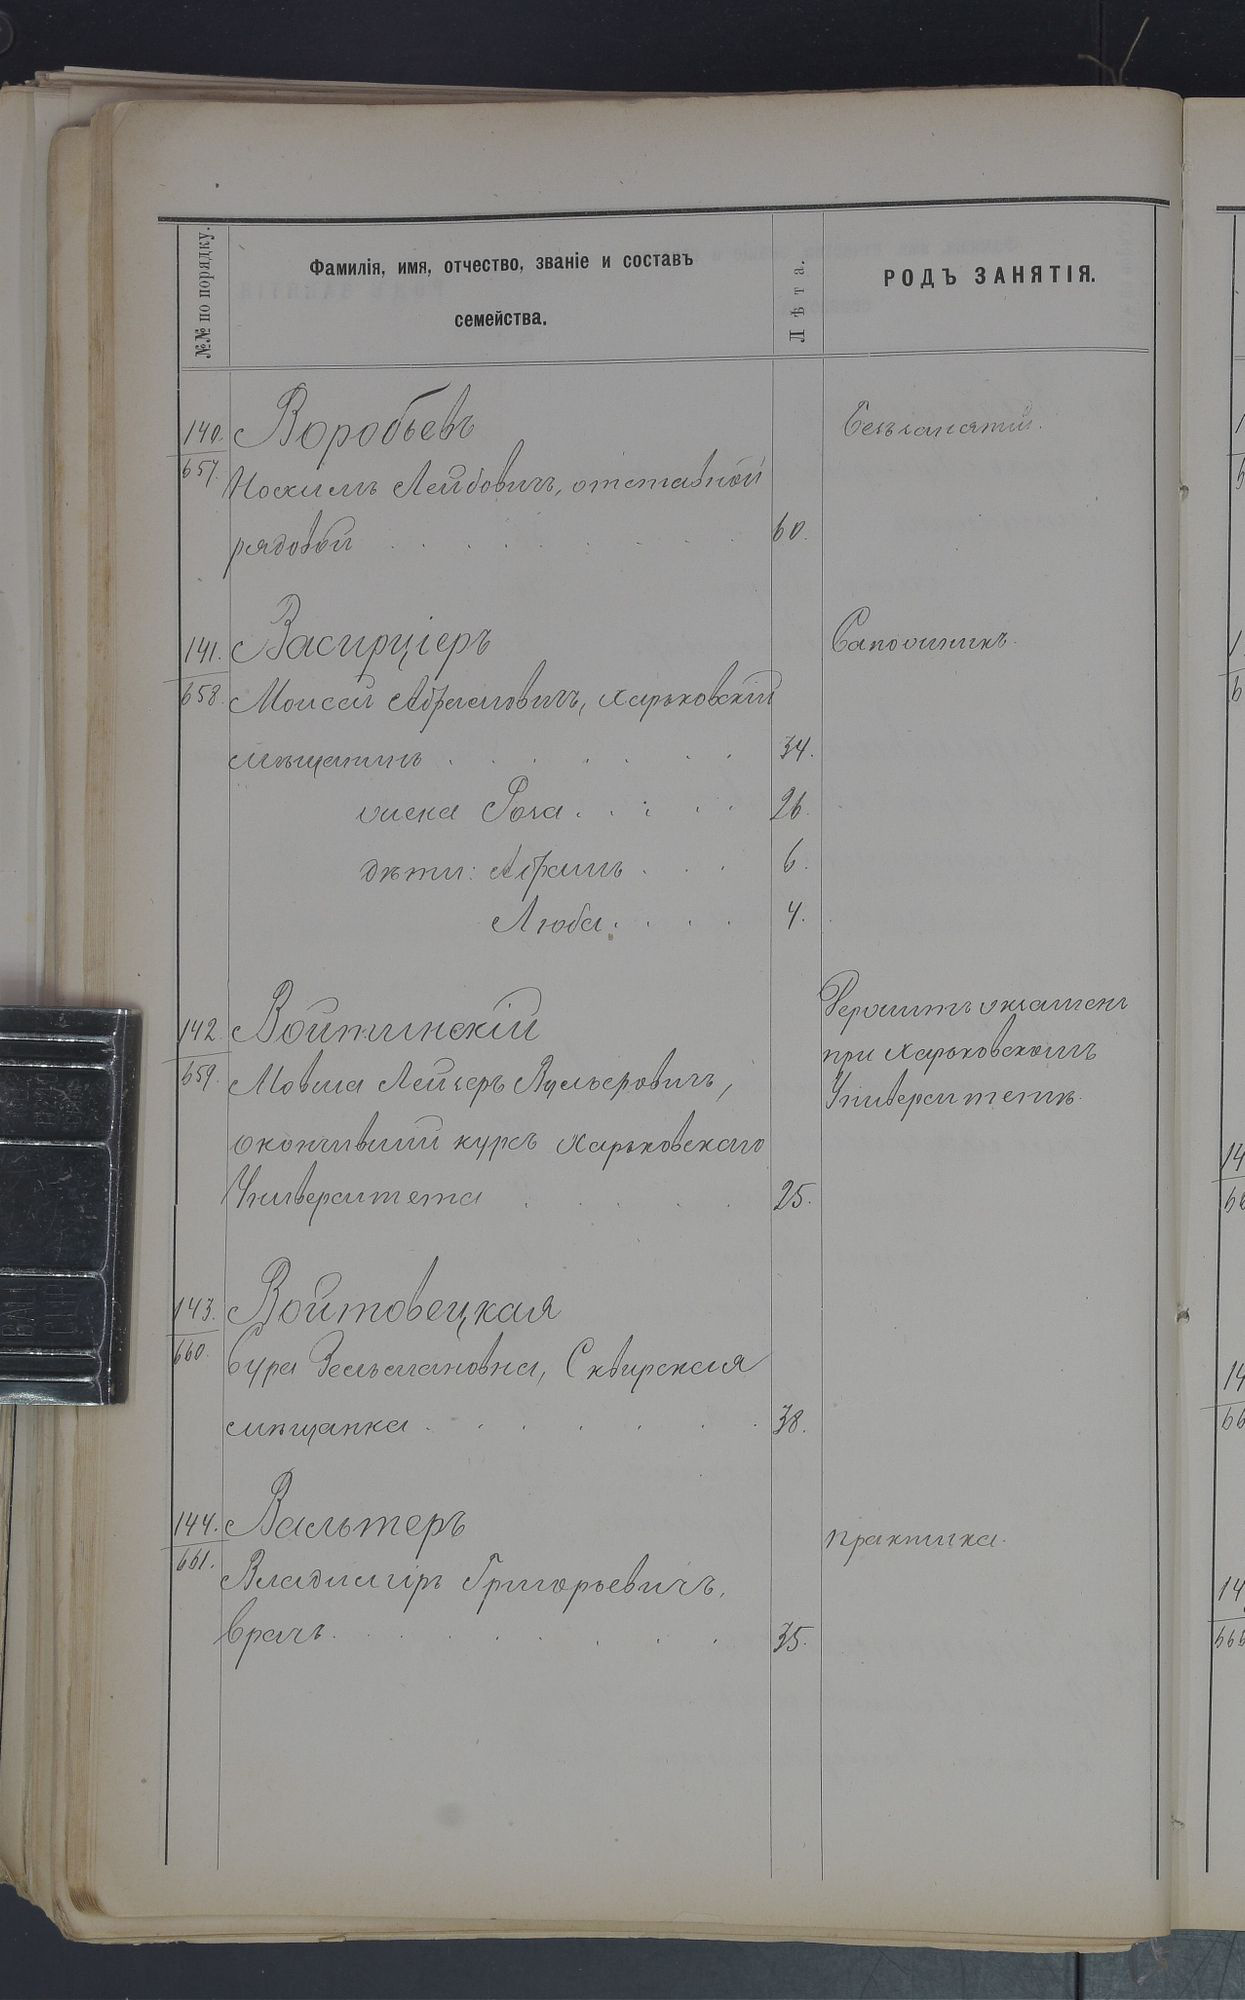 №№ по порядку.
Фамилія, имя, отчество, званіе и составъ
семейства.
Лѣта.
РОДЪ ЗАНЯТІЯ.
140. Воробьевъ Безъ занятій.
657. Лейбовичъ, отставной
рядовой 60.
141. Васирціеръ Сапожникъ.
658. Моисей Абрамовичъ, Харьковскій
мѣщанинъ 34.
жена Роза 26.
дѣти: Абрамъ 6.
Люба 4.
142. Войтинскій
экзаменъ
при Харьковскомъ
659. Мовша Лейзеръ Вульфовичъ,
Университетѣ.
окончившій курсъ Харьковскаго
Университета 25.
143. Войтовецкая
660. Сура Зельмановна, Сквирская
мѣщанка 38.
144. Вальтеръ практика.
661. Владиміръ Григорьевичъ,
врачъ 35.